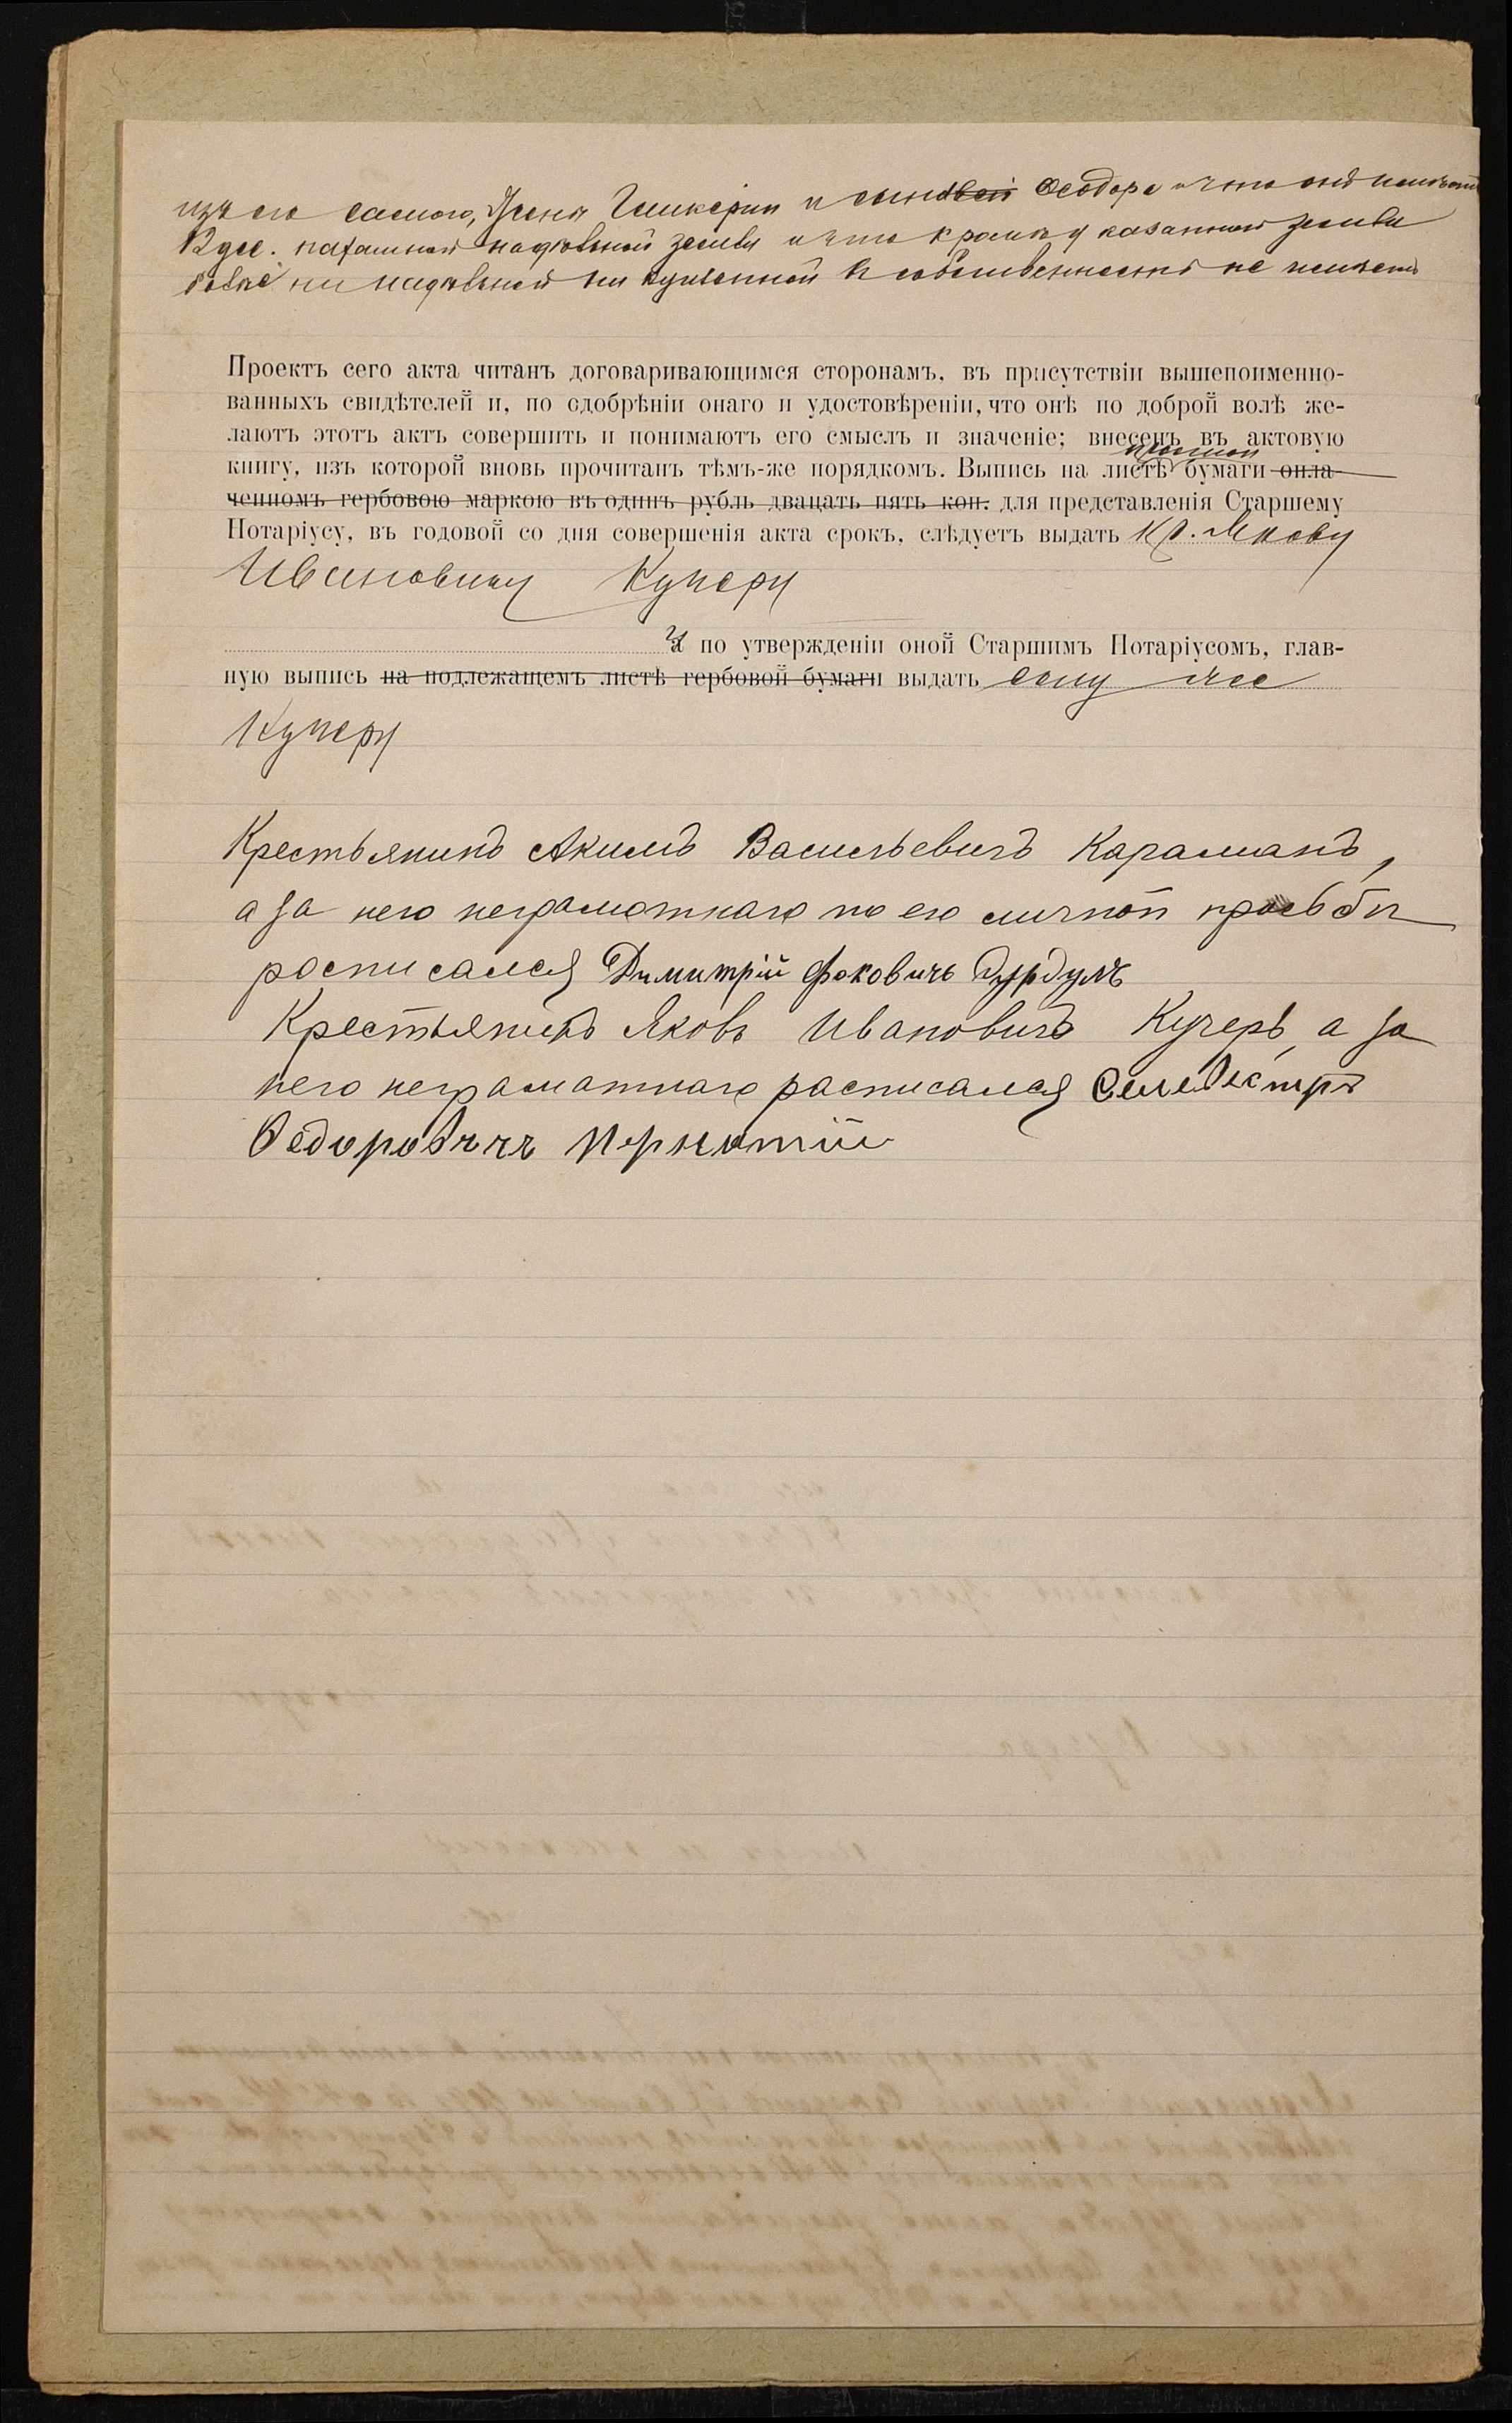 изъ его самого, жены Гликеріи и сыновей Ѳеодора и что онъ имѣетъ
2 дес. пахатной надѣльной земли и что кромѣ указанной земли
болѣе ни надѣльной ни купленной въ собственность не имѣетъ
Проектъ сего акта читанъ договаривающимся сторонамъ, въ присутствіи вышепоименно-
ванныхъ свидѣтелей и, по одобрѣніи онаго и удостовѣреніи, что онѣ по доброй волѣ же-
лаютъ этотъ актъ совершить и понимаютъ его смыслъ и значеніе; внесенъ въ актовую
книгу, изъ которой вновь прочитанъ тѣмъ-же порядкомъ. Выпись на листѣ простой бумаги опла-
ченномъ гербовою маркою въ одинъ рубль двацать пять коп. для представленія Старшему
Нотаріусу, въ годовой со дня совершенія акта срокъ, слѣдуетъ выдать кр. Якову
Ивановичу Кучеру
и по утвержденіи оной Старшимъ Нотаріусомъ, глав-
ную выпись на подлежащемъ листѣ гербовой бумаги выдать ему же
Кучеру
Крестьянинъ Акимъ Васильевичъ Караманъ,
а за него неграмотнаго по его личной просьбѣ
росписался Димитрій Фоковичь Дурдулъ
Крестьянинъ Яковъ Ивановичъ Кучеръ, а за
него неграматнаго расписался Селевестръ
Ѳедоровичъ